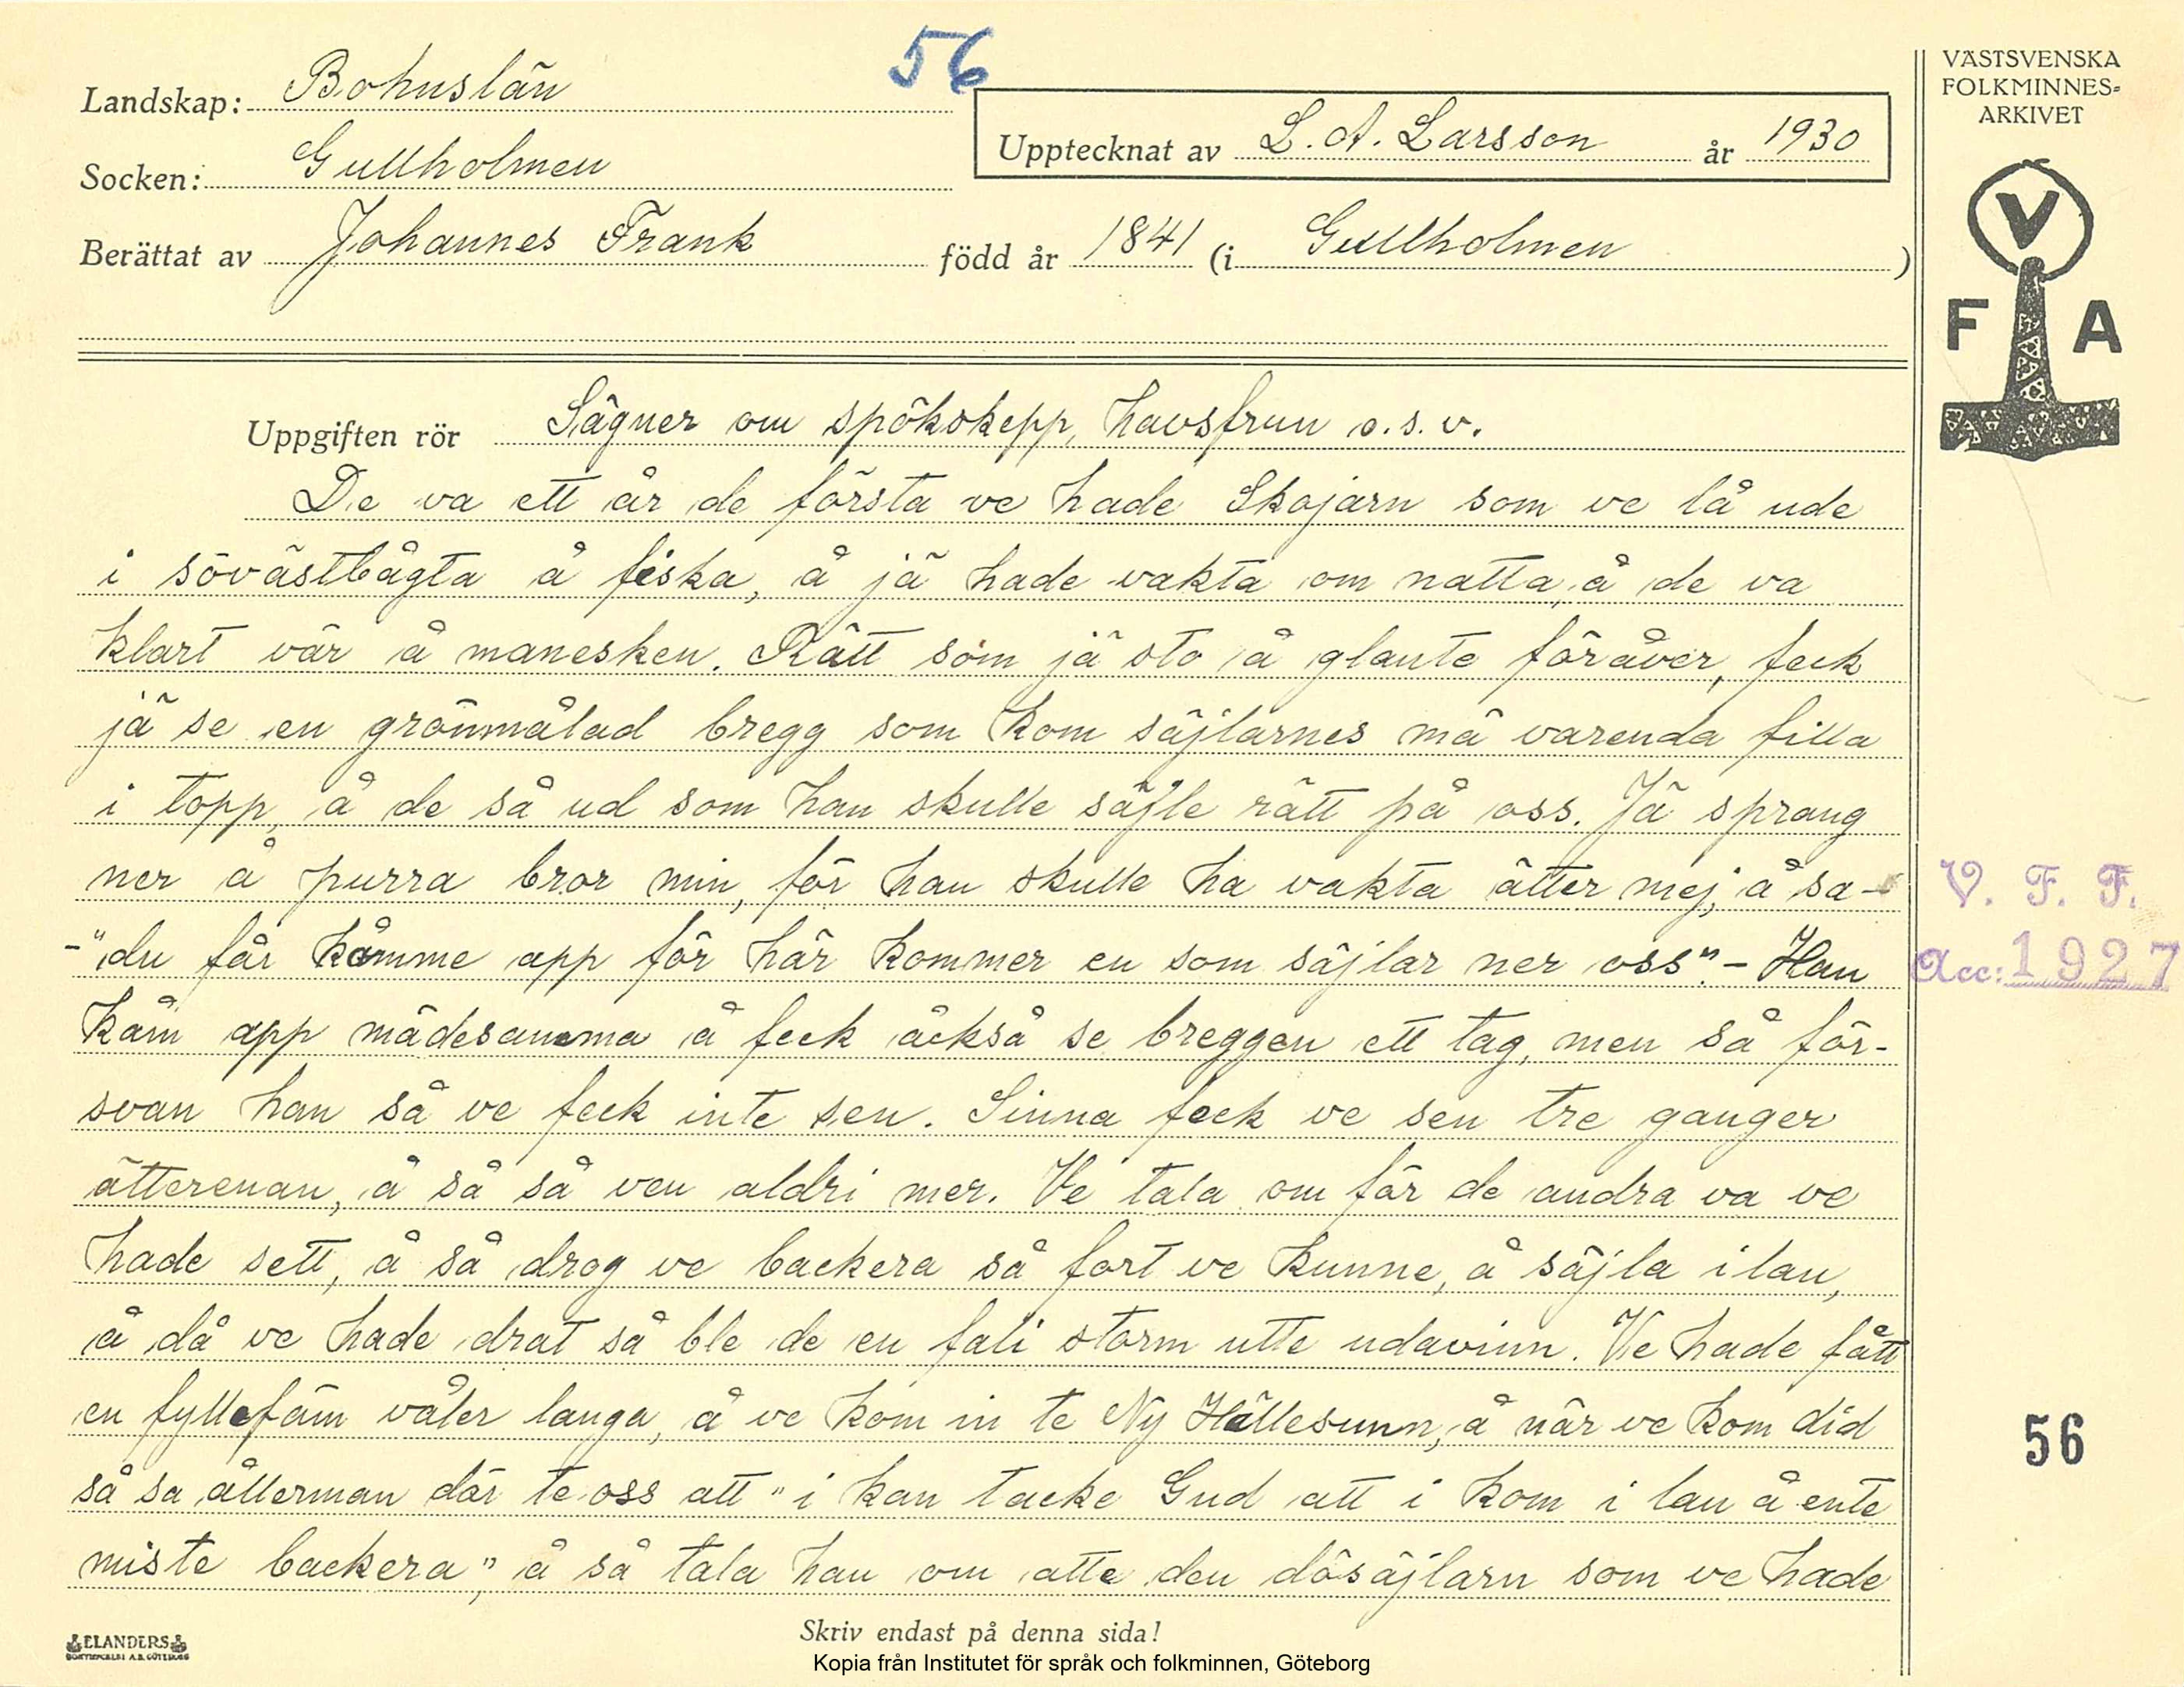 56
Landskap: Bohuslän
Socken: Gullholmen
Upptecknat av L. A. Larsson år 1930
Berättat av Johannes Frank född år 1841 (i Gullholmen )
VÄSTSVENSKA
FOLKMINNES-
ARKIVET
V
F A
Uppgiften rör Sägner om spökskepp, havsfrun o.s.v.
De va ett år de första ve hade Skojarn som ve lå ude
i sövästbågta å fiska, å jä hade vakta om natta, å de va
klart vär å manesken. Rätt som jä sto å glante föråver, feck
jä se en grönmålad bregg som kom säjlarnes mä varenda filla
i topp, å de så ud som han skulle säjle rätt på oss. Jä sprang
ner å purra bror min, för han skulle ha vakta ätter mej, å sa-
-"du får kåmme app för här kommer en som säjlar ner oss".- Han
kåm app mädesamma å feck åckså se breggen ett tag, men så för-
svan han så ve feck inte sen. Sinna feck ve sen tre ganger
ätterenan, å så så ven aldri mer. Ve tala om för de andra va ve
hade sett, å så drog ve backera så fort ve kunne, å säjla i lan,
å då ve hade drat så ble de en fali storm utte udavinn. Ve hade fått
en fyllefäm våler langa, å ve kom in te Ny Hällesunn, å när ve kom did
så sa ållerman där te oss att "i kan tacke Gud att i kom i lan å ente
miste backera", å så tala han om atte den dösäjlarn som ve hade
V. F. F.
Acc: 1927
56
Skriv endast på denna sida!
ELANDERS
Kopia från Institutet för språk och folkminnen, Göteborg